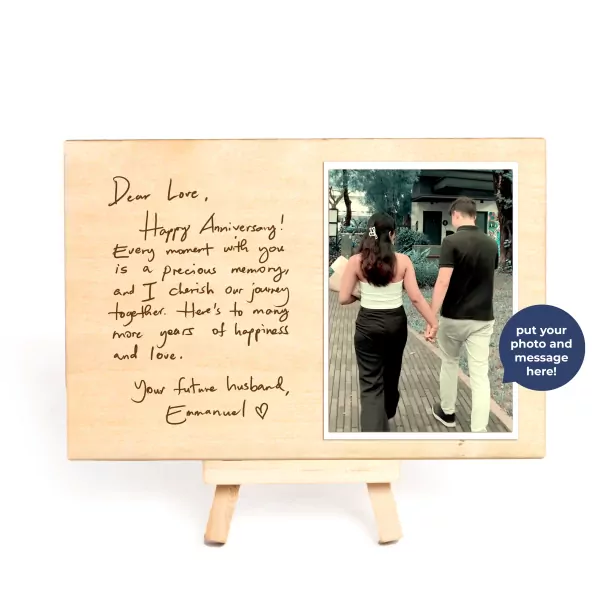 Dear Love,
Happy Anniversary!
Every moment with you
is a precious memory,
and I cherish our journey
together. Here's to many
more years of happiness
and love.
Your future husband,
Emmanuel ♡
put your
photo and
message
here!